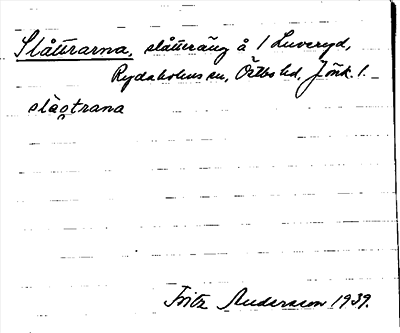 Slåttrarna, slåtteräng å 1 Luveryd,
Rydaholms sn, Östbo hd, Jönk. l.
slåotrana
Fritz Andersson 1939.